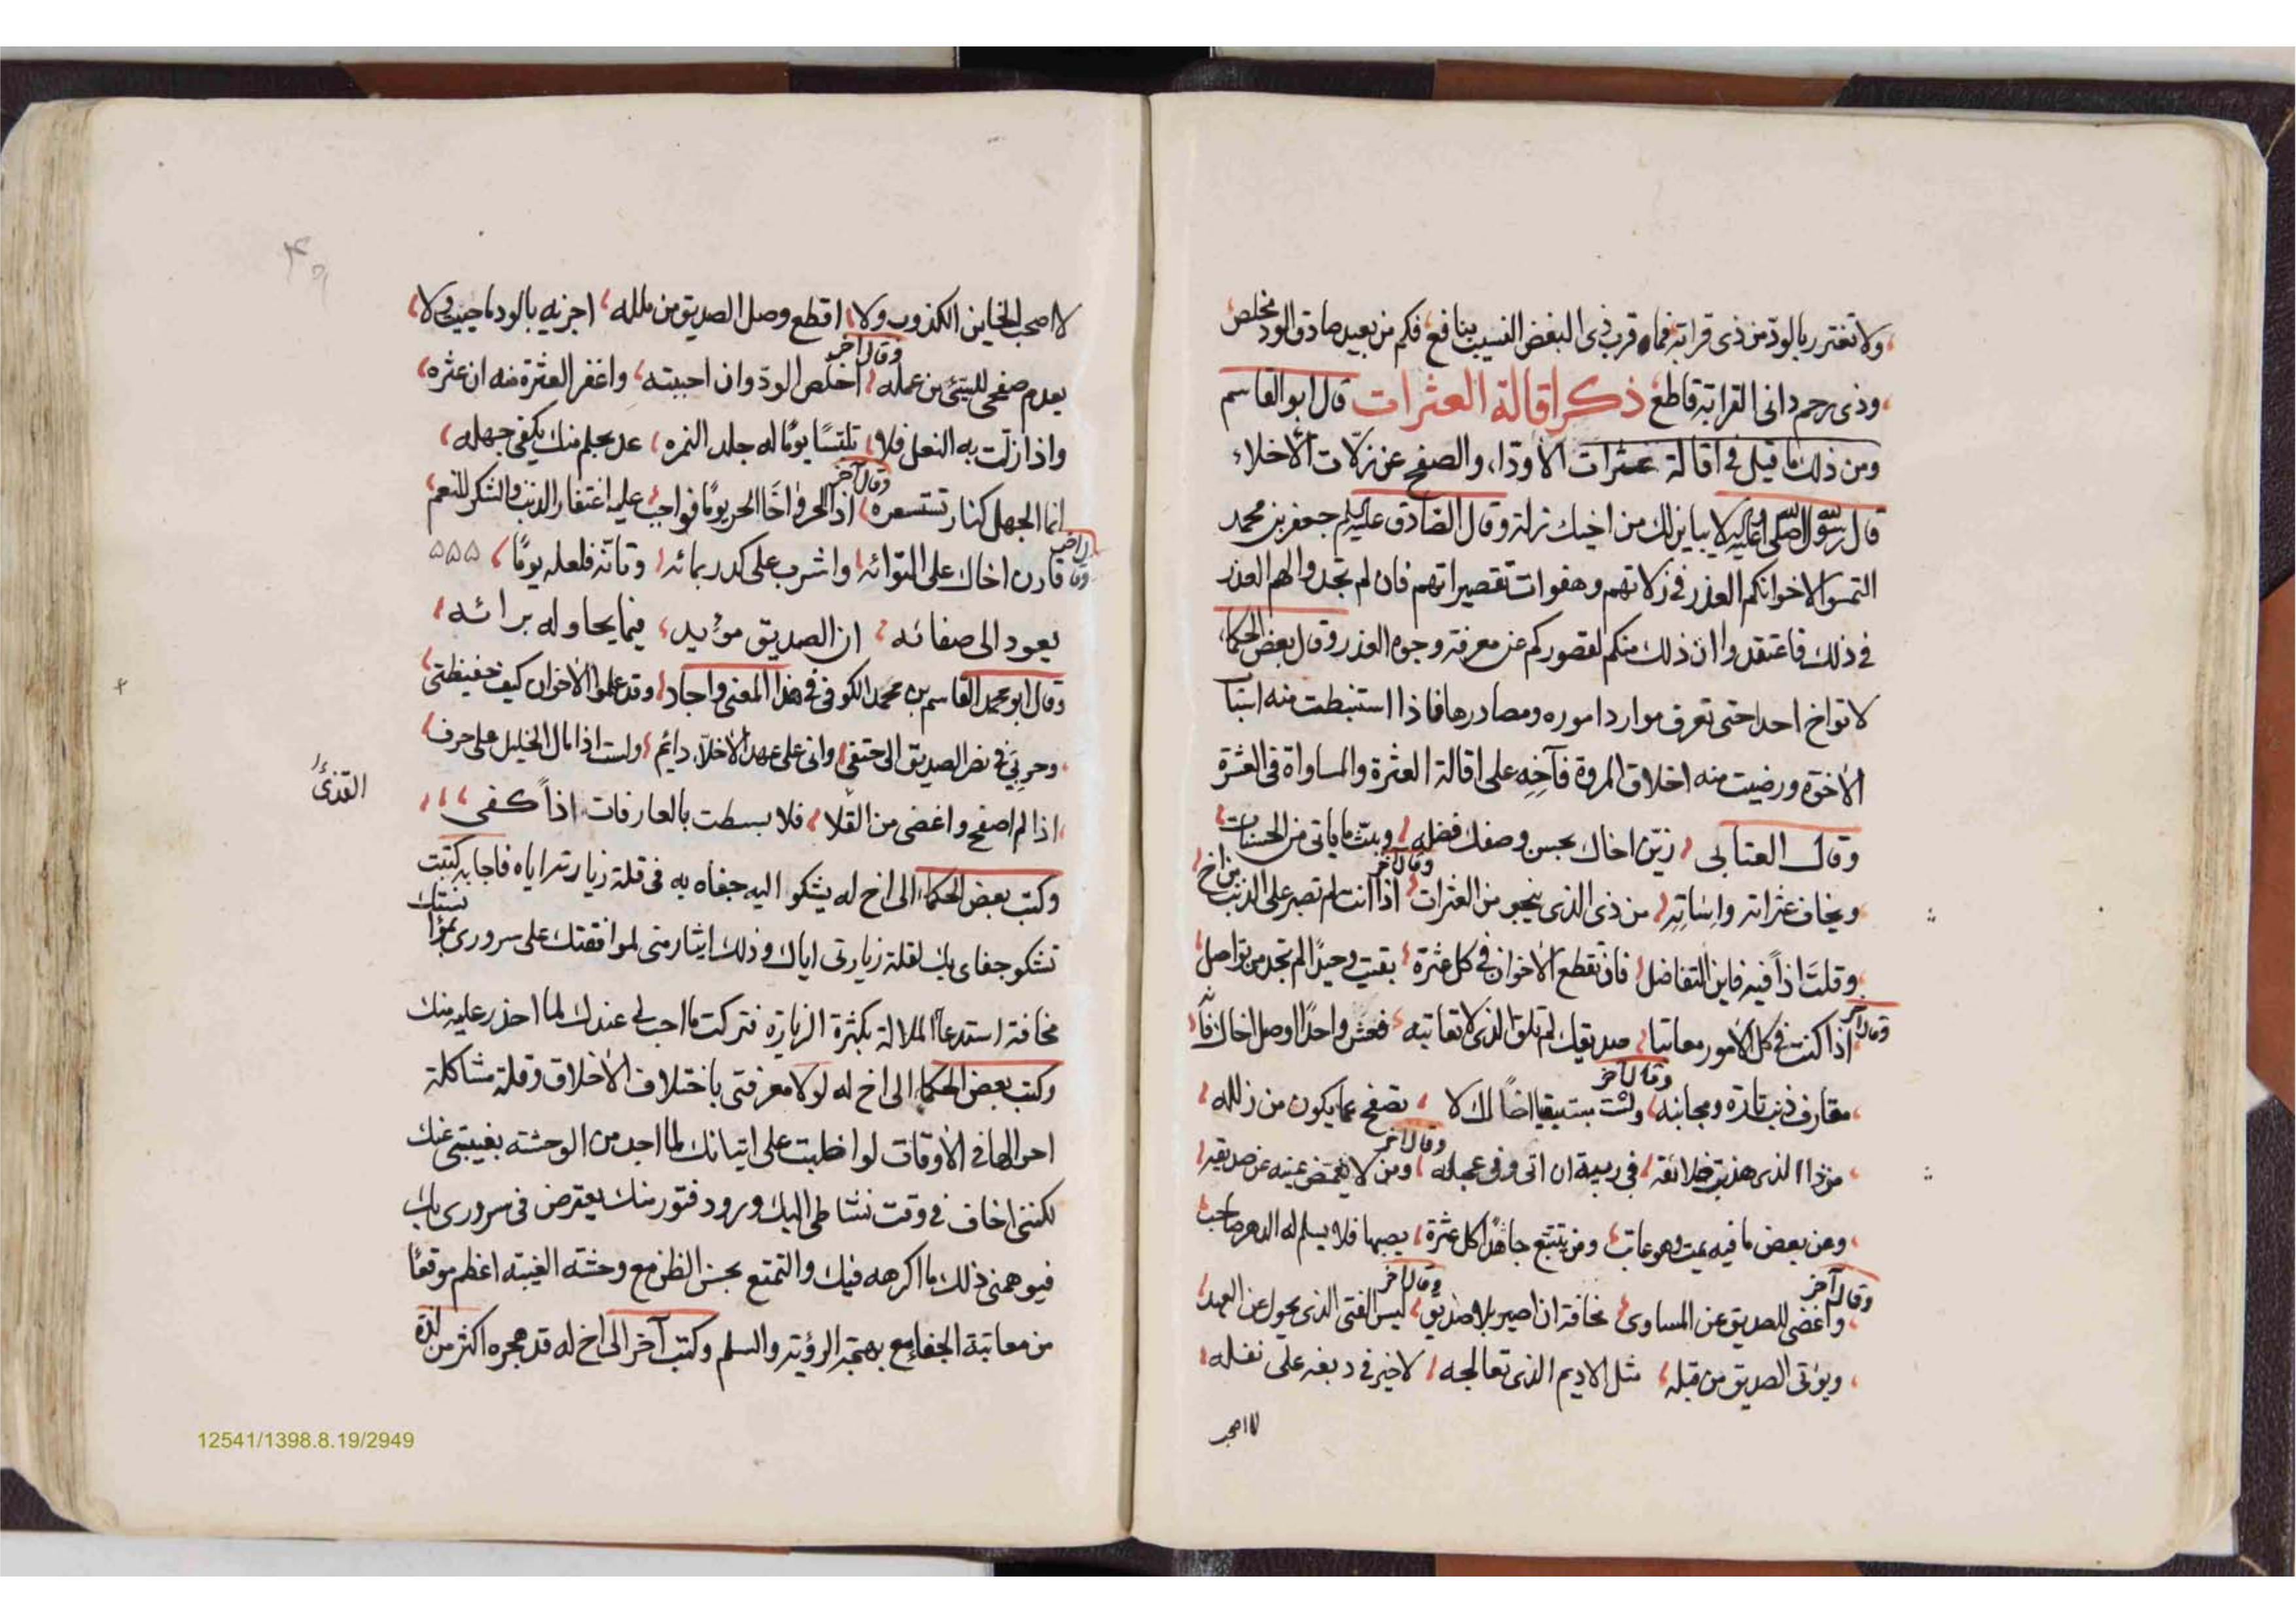 ولا تغترر بالود من ذی قرابة فما قرب ذی البغض النسیب بنافع فکم من بعید صادق الود مخلص
وذی رحم دانی القرابة قاطع ذکر اقالة العثرات قال ابو القاسم
ومن ذلك ما قیل فی اقالة عثرات الاودا، والصفح عن زلات الاخلاء
قال رسول الله صلی الله علیه لا یباینك من اخیك زلة وقال الصادق علیه السلم جعفر بن محمد
التمسوا لاخوانکم العذر فی زلاتهم وهفوات تقصیراتهم فان لم تجدوا لهم العذر
فی ذلك فاعتقدوا ان ذلك منکم لقصورکم عن معرفة وجوه العذر وقال بعض الحکما،
لا تواخ احدا حتی تعرف موارد اموره ومصادرها فاذا استنبطت منه اسباب
الاخوة ورضیت منه اخلاق المروة فآخه علی اقالة العثرة والمساواة فی العشرة
وقال العتابی زین اخاك بحسن وصفك فضله وبث ما یاتی من الحسنات
ویخاف عثراته واساته من ذی الذی ینجو من العثرات وقال آخر اذا انت لم تصبر علی الذنب من اخ
وقلت اذاً فیه فاین التفاضل فان تقطع الاخوان فی کل عثرة بقیت وحیداً لم تجد من تواصل
وقال آخر اذا کنت فی کل الامور معاتبا صدیقك لم تلق الذی لا تعاتبه فعش واحدًا او صل اخاك فانه
مقارف ذنب تارة ومجانبه وقال آخر ولست بستبقیا اخًا لك لا تصفح عما یکون من زلله
من ذا الذی هذبت خلائقه فی ریبة ان اتی وفی عجله وقال آخر ومن لا یغمض عینه عن صدیقه
وعن بعض ما فیه یمت وهو عاتب ومن یتتبع جاهدًا کل عثرة یصبها فلا یسلم له الدهر صاحب
وقال آخر واغضی للصدیق عن المساوی مخافة ان اصیر بلا صدیق وقال آخر لیس الفتی الذی یحول عن العهد
ویؤتی الصدیق من قبله مثل الادیم الذی تعالجه لا خیر فی دبغه علی نغله
لا اصحب
لا اصحب الخاین الکذوب ولا اقطع وصل الصدیق من ملله اجزیه بالود ما حییت ولا
یعدم صفحی للسیئ من عمله وقال آخر اخلص الود وان احببته واغفر العثرة منه ان عثره
واذا زلت به النعل فلا تلبسًا یومًا له جلد النمره عد بحلم منك یکفی جهله
انما الجهل کنار تستسعره وقال آخر اذا الحر واخا الحر یومًا فواجب علیه اغتفار الذنب والشکر للنعم
وقال آخر قارن اخاك علی التوائه واشرب علی کدر بمائه وتانه فلعله یومًا ۵۵۵
یعود الی صفائه ان الصدیق مؤید فیما یحاوله برائه
وقال ابو محمد القاسم بن محمد الکوفی فی هذا المعنی واجاد وقد علموا الاخوان کیف حفیظتی
وحربی فی نصر الصدیق الی حتفی وانی علی عهد الاخلاء دائم ولست اذا مال الخلیل علی حرف
اذا لم اصفح واغضی من القلا فلا بسطت بالعارفات اذاً کفی
القذیٰ
وکتب بعض الحکما، الی اخ له یشکو الیه جفاه به فی قلة زیارته ایاه فاجابه کتبت
تشکو جفای بك لقلة زیارتی ایاك وذلك ایثار منی لموافقتك علی سروری بمؤانستك
مخافة استدعا الملالة بکثرة الزیارة فترکت ما احب لی عندك لما احذر علیه منك
وکتب بعض الحکما الی اخ له لولا معرفتی باختلاف الاخلاق وقلة مشاکلة
احوالها فی الاوقات لواظبت علی اتیانك لما اجد من الوحشه بغیبتی عنك
لکننی اخاف فی وقت نشاطی الیك ورود فتور منك یعترض فی سروری بك
فیوهمنی ذلك ما اکرهه فیك والتمتع بحسن الظن مع وحشة الغیبه اعظم موقعًا
من معاتبة الجفا مع بهجة الرؤیة والسلم وکتب آخر الی اخ له قد هجره اکثر من لذة
12541/1398.8.19/2949